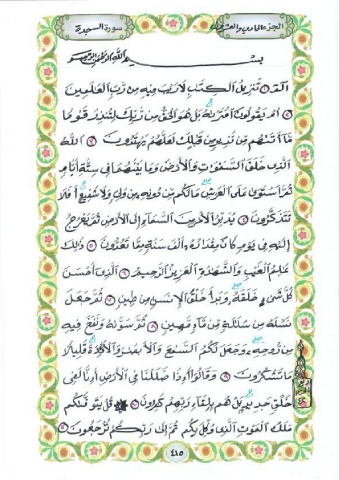 الجزء الحادي والعشرون
سورة السجدة
بسم الله الرحمن الرحيم
الٓمٓ ١ تَنزِيلُ ٱلْكِتَٰبِ لَا رَيْبَ فِيهِ مِن رَّبِّ ٱلْعَٰلَمِينَ
٢ أَمْ يَقُولُونَ ٱفْتَرَىٰهُ بَلْ هُوَ ٱلْحَقُّ مِن رَّبِّكَ لِتُنذِرَ قَوْمًا
مَّآ أَتَىٰهُم مِّن نَّذِيرٍ مِّن قَبْلِكَ لَعَلَّهُمْ يَهْتَدُونَ ٣ ٱللَّهُ
ٱلَّذِى خَلَقَ ٱلسَّمَٰوَٰتِ وَٱلْأَرْضَ وَمَا بَيْنَهُمَا فِى سِتَّةِ أَيَّامٍ
ثُمَّ ٱسْتَوَىٰ عَلَى ٱلْعَرْشِ مَا لَكُم مِّن دُونِهِۦ مِن وَلِىٍّ وَلَا شَفِيعٍ أَفَلَا
تَتَذَكَّرُونَ ٤ يُدَبِّرُ ٱلْأَمْرَ مِنَ ٱلسَّمَآءِ إِلَى ٱلْأَرْضِ ثُمَّ يَعْرُجُ
إِلَيْهِ فِى يَوْمٍ كَانَ مِقْدَارُهُۥٓ أَلْفَ سَنَةٍ مِّمَّا تَعُدُّونَ ٥ ذَٰلِكَ
عَٰلِمُ ٱلْغَيْبِ وَٱلشَّهَٰدَةِ ٱلْعَزِيزُ ٱلرَّحِيمُ ٦ ٱلَّذِىٓ أَحْسَنَ
كُلَّ شَىْءٍ خَلَقَهُۥ وَبَدَأَ خَلْقَ ٱلْإِنسَٰنِ مِن طِينٍ ٧ ثُمَّ جَعَلَ
نَسْلَهُۥ مِن سُلَٰلَةٍ مِّن مَّآءٍ مَّهِينٍ ٨ ثُمَّ سَوَّىٰهُ وَنَفَخَ فِيهِ
مِن رُّوحِهِۦ وَجَعَلَ لَكُمُ ٱلسَّمْعَ وَٱلْأَبْصَٰرَ وَٱلْأَفْـِٔدَةَ قَلِيلًا
مَّا تَشْكُرُونَ ٩ وَقَالُوٓا۟ أَءِذَا ضَلَلْنَا فِى ٱلْأَرْضِ أَءِنَّا لَفِى
خَلْقٍ جَدِيدٍۭ بَلْ هُم بِلِقَآءِ رَبِّهِمْ كَٰفِرُونَ ١٠ قُلْ يَتَوَفَّىٰكُم
مَّلَكُ ٱلْمَوْتِ ٱلَّذِى وُكِّلَ بِكُمْ ثُمَّ إِلَىٰ رَبِّكُمْ تُرْجَعُونَ ١١
٤١٥